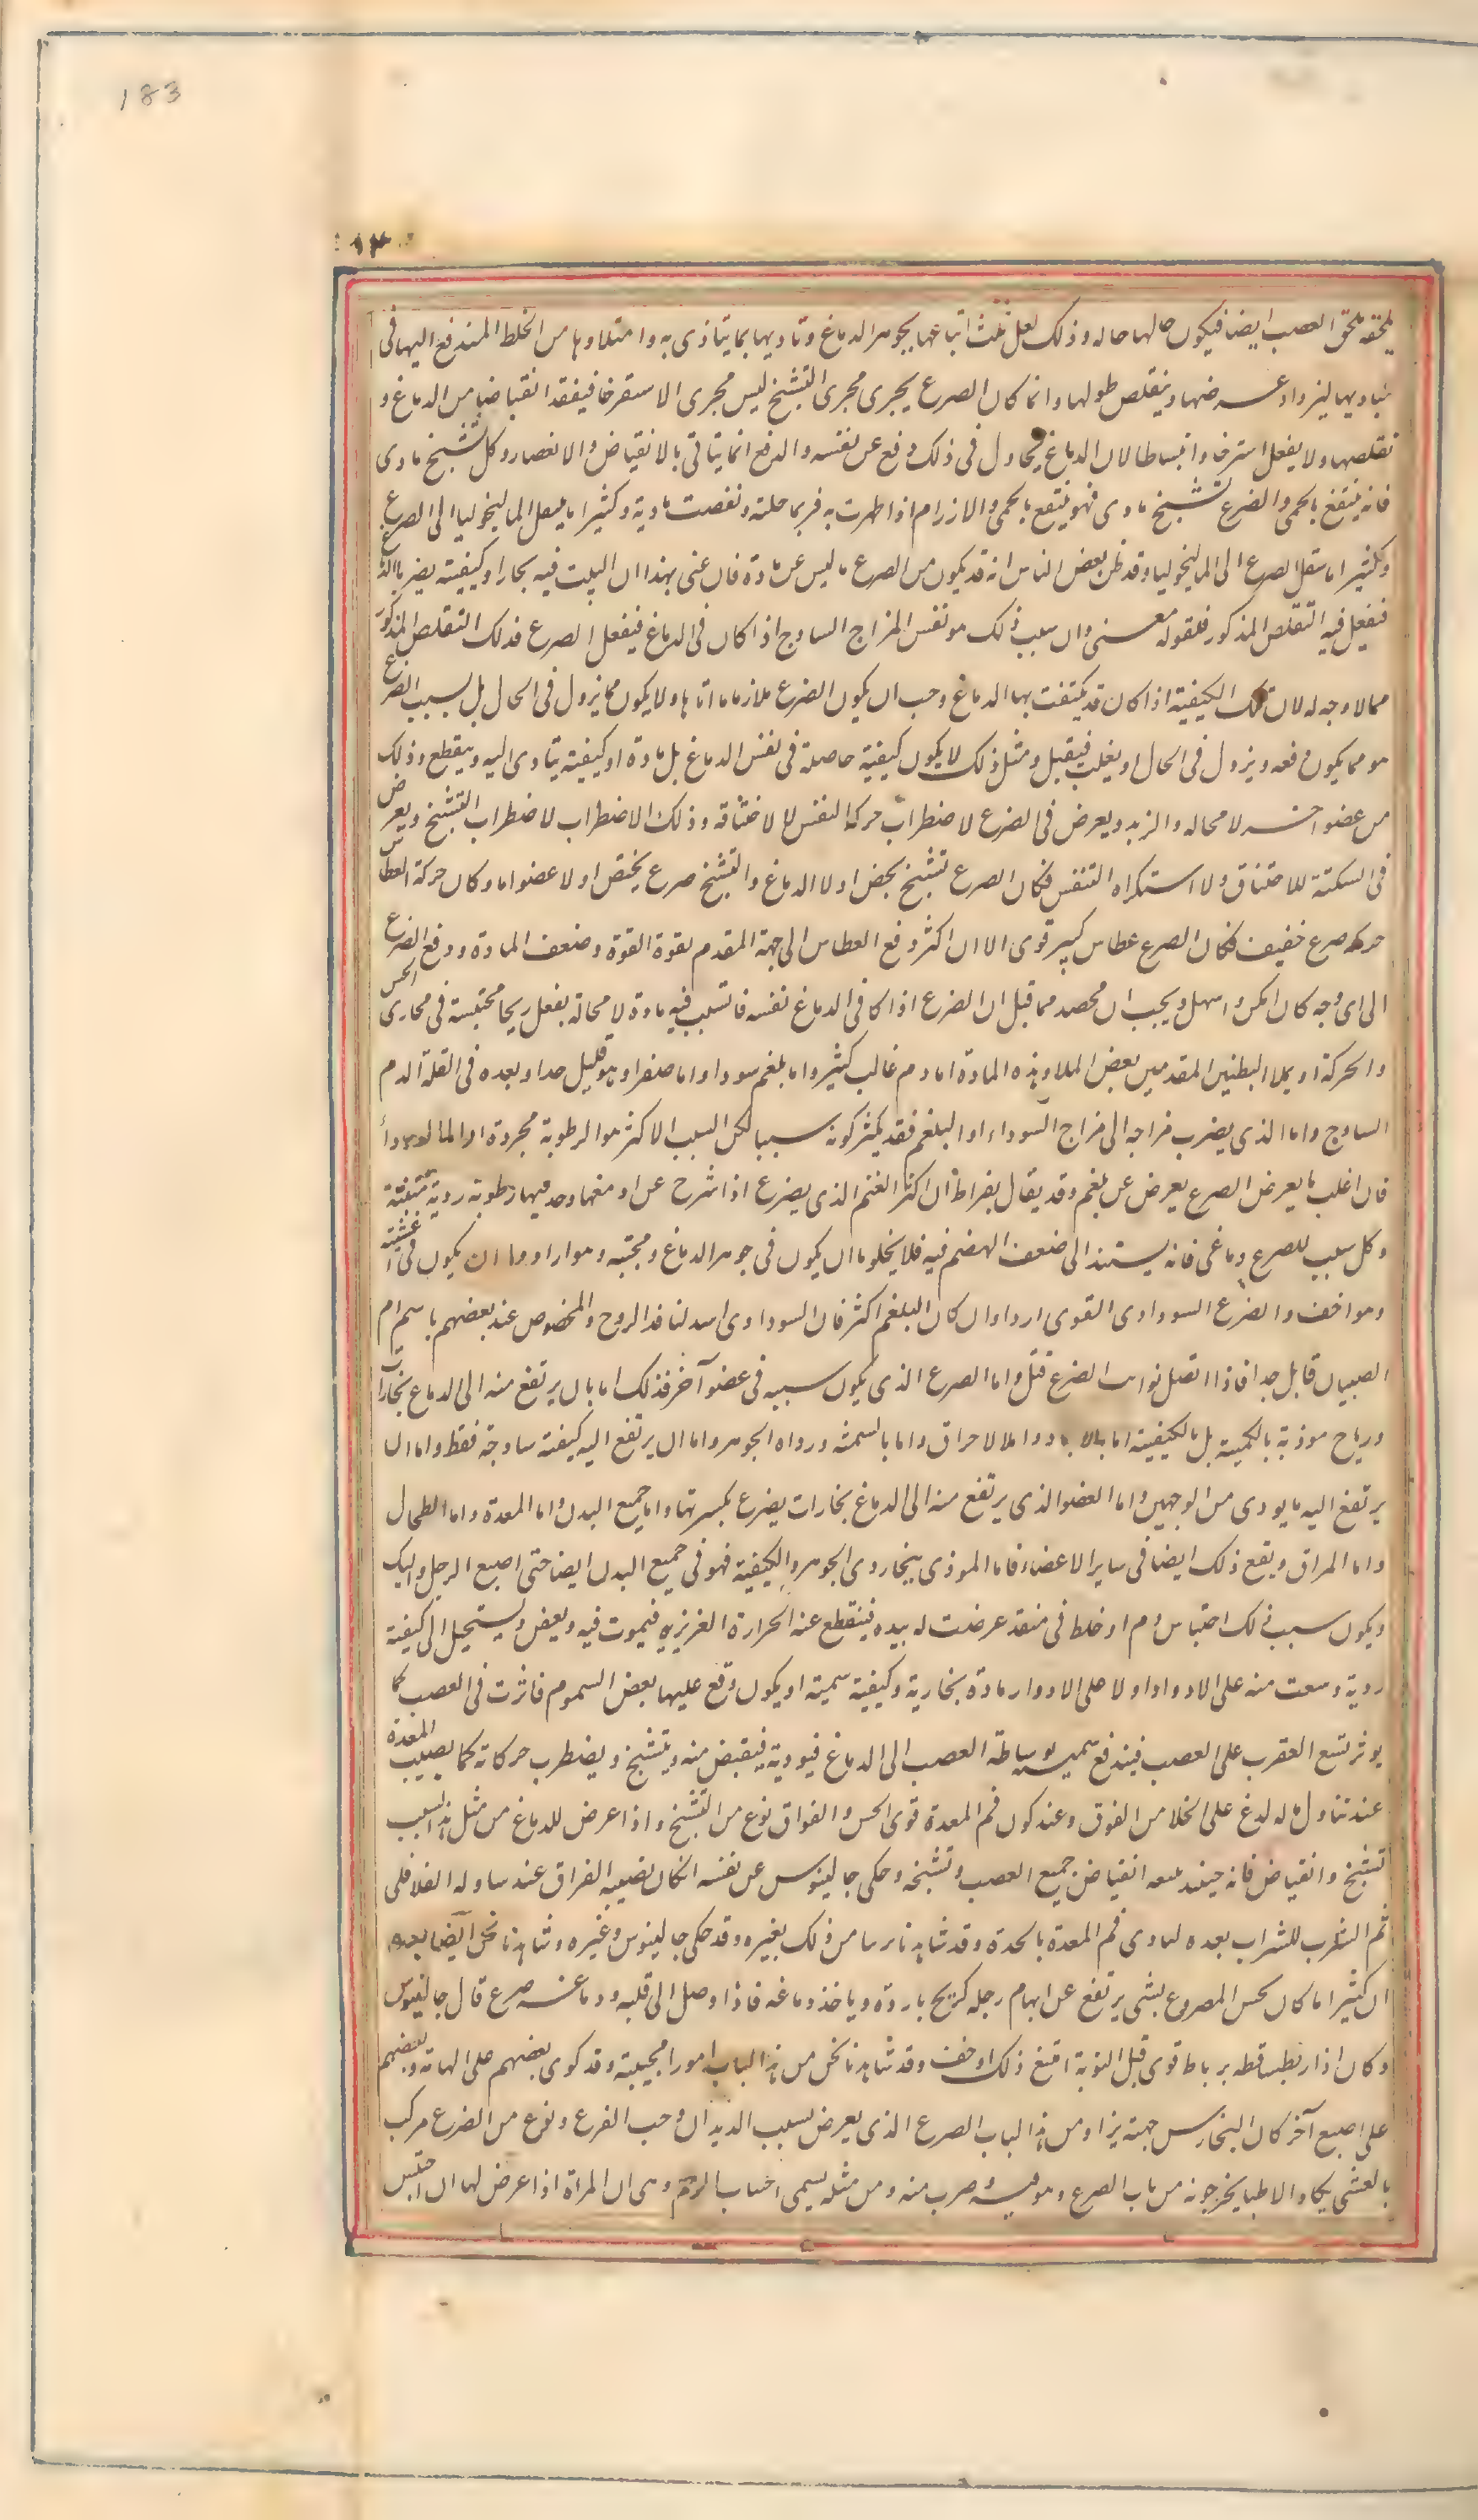 183
١٣٠
يلحقه يلحق العصب ايضا فيكون حالها حاله وذلك لعلل ثلث اتباعها بجوهر الدماغ وتاديها بما يتاذى به وامتلاوها من الخلط المندفع اليها فى
مباديها ليزداد عرضها وينقلص طولها وانما كان الصرع يجرى مجرى التشنج ليس مجرى الاسترخا فيفقد انقباضا من الدماغ و
تقلصها ولا يفعل استرخا وانبساطا لان الدماغ يحاول فى ذلك دفع عن نفسه والدفع انما يتاتى بالانقباض والانعصار وكل تشنج مادى
فانه ينتفع بالحمى والصرع تشنج مادى فهو ينتفع بالحمى والاورام اذا ظهرت به فربما حللته ونقصت مادته وكثيرا ما ينتقل الماليخوليا الى الصرع
وكثيرا ما ينتقل الصرع الى الماليخوليا وقد ظن بعض الناس انه قد يكون من الصرع ما ليس عن مادة فان عنى بهذا ان البت فيه بخارا وكيفيته يضر بالدماغ
فيفعل فيه التقلص المذكور فلقوله معنى وان سبب ذلك هو نفس المزاج الساذج اذا كان فى الدماغ فيفعل الصرع فذلك التقلص المذكور
مما لا وجه له لان تلك الكيفية اذا كان قد تكيفت بها الدماغ وجب ان يكون الصرع ملازما ما اتاها ولا يكون مما يزول فى الحال بل سبب الصرع
هو مما يكون دفعه ويزول فى الحال او يغلب فيقتل ومثل ذلك لا يكون كيفية حاصلة فى نفس الدماغ بل مادة او كيفية يتادى اليه وينقطع وذلك
من عضو آخر لا محاله والزبد ويعرض فى الصرع لاضطراب حركة النفس لا لاختناقه وذلك الاضطراب لاضطراب التشنج ويعرض
فى السكتة للاختناق ولا استكراه التنفس فكان الصرع تشنج يخص اولا الدماغ والتشنج صرع يختص اولا عضوا ما وكان حركة العطاس
حركة صرع خفيف فكان الصرع عطاس كبير قوى الا ان اكثر دفع العطاس الى جهة المقدم لقوة القوة وضعف المادة ودفع الصرع
الى اى وجه كان امكن واسهل ويجب ان محصل مما قيل ان الصرع اذا كا فى الدماغ نفسه فالسبب فيه مادة لا محالة يفعل ريحا محتبسة فى مجارى الحس
والحركة او يملا البطنين المقدمين بعض الملا وهذه المادة اما دم غالب كثير واما بلغم سودا واما صفرا وهو قليل جدا وبعده فى القلة الدم
الساذج واما الذى يضرب مزاجه الى مزاج السوداء او البلغم فقد يكثر كونه سببا لكن السبب الاكثر هو الرطوبة مجردة
فان اغلب ما يعرض الصرع يعرض عن بلغم وقد يقال بقراط ان اكثر الغنم الذى يصرع اذا شرح عن ادمغتها وجد فيها رطوبة ردية منتنة
وكل سبب للصرع دماغى فانه يستند الى ضعف الهضم فيه فلا يخلو ما ان يكون فى جوهر الدماغ ومحتبه وهو اردا واما ان يكون فى اغشيته
وهو اخف والصرع السوداوى القوى اردا وان كان البلغم اكثر فان السوداوى اسد لنافذ الروح والمخصوص عند بعضهم باسم ام
الصبيان قاتل جدا فاذا اتصل نوايب الصرع قتل واما الصرع الذى يكون سببه فى عضو آخر فذلك اما بان يرتفع منه الى الدماغ بخارات
ورياح موذية بالكمية بل بالكيفية اما بالاحراق واما بالسمية ورداه الجوهر واما ان يرتفع اليه كيفية ساذجة فقط واما ان
يرتفع اليه ما يودى من الوجهين واما العضو الذى يرتفع منه الى الدماغ بخارات يصرع بكسرتها واما جميع البدن واما المعدة واما الطحال
واما المراق ويقع ذلك ايضا فى ساير الاعضاء فاما الموذى ببخار ردى الجوهر والكيفية فهو فى جميع البدن ايضا حتى اصبع الرجل واليد
ويكون سبب ذلك احتباس دم او خلط فى منفذ عرضت له سده فينقطع عنه الحرارة الغريزية فيموت فيه ويعفن ويستحيل الى كيفية
ردية وسعت منه على الادوار او لا على الادوار مادة بخارية وكيفية سمية او يكون وقع عليها بعض السموم فاثرت فى العصب كما
يوثر لسع العقرب على العصب فيندفع سميته بوساطة العصب الى الدماغ فيوديه فينقبض منه ويتشنج ويضطرب حركاته كما يصيب المعدة
عند تناول ماله لدغ على الخلا من الفوق وعند كون فم المعدة قوى الحس والفواق نوع من التشنج واذا عرض للدماغ من مثل هذا السبب
تشنج وانقباض فانه حينئذ يتبعه انقباض جميع العصب وتشنجه وحكى جالينوس عن نفسه انكان يصيبه الفواق عند تناوله الفلافلى
ثم الشرب للشراب بعده لتاذى فم المعدة بالحدة وقد شاهدنا من ذلك بغيره وقد حكى جالينوس وغيره وشاهدنا نحن ايضا بعده
ان كثيرا ما كان يحس المصروع بشى يرتفع عن ابهام رجله كريح باردة وياخذ دماغه فاذا وصل الى قلبه ودماغه صرع قال جالينوس
وكان اذا ربط ساقه برباط قوى قبل النوبة امتنع ذلك او خف وقد شاهدنا نحن من هذا الباب امورا عجيبة وقد كوى بعضهم على ابهامه وبعضهم
على اصبع آخر كان البخار من جهته يزا ومن هذا الباب الصرع الذى يعرض بسبب الديدان وحب القرع ونوع من الصرع مركب
بالغشى يكا والاطبا يخرجونه من باب الصرع وهو فيه وضرب منه ومن مثله يسمى اختناق الرحم وهى ان المراة اذا عرض لها ان احتبس